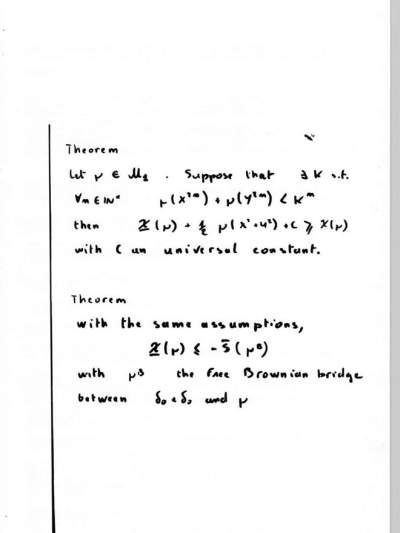 Theorem
Let μ ∈ M₂ . Suppose that ∃ K s.t.
∀m ∈ ℕ* μ(x²ᵐ) + μ(y²ᵐ) < Kᵐ
then χ(μ) + ½ μ(x²+y²) + C ⩾ χ(μ)
with C un universal constant.
Theorem
with the same assumptions,
χ(μ) ≤ - S̄(μᴮ)
with μᴮ the free Brownian bridge
between δ₀ and μ